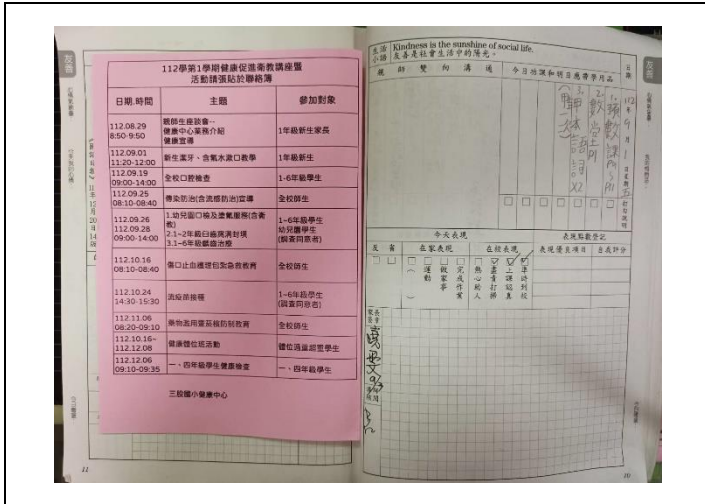 友善
112學第1學期健康促進衛教講座暨
活動請張貼於聯絡簿
日期.時間 主題 參加對象
112.08.29
8:50-9:50
親師生座談會--
健康中心業務介紹
健康宣導
1年級新生家長
112.09.01
11:20-12:00
新生潔牙、含氟水漱口教學
1年級新生
112.09.19
09:00-14:00
全校口腔檢查
1-6年級學生
112.09.25
08:10-08:40
傳染防治(含流感防治)宣導
全校師生
112.09.26
112.09.28
09:00-14:00
1.幼兒園口檢及塗氟服務(含衛
教)
2.1~2年級臼齒窩溝封填
3.1~6年級齲齒治療
1~6年級學生
幼兒園學生
(調查同意者)
112.10.16
08:10-08:40
傷口止血護理包紮急救教育
全校師生
112.10.24
14:30-15:30
流疫苗接種
1~6年級學生
(調查同意者)
112.11.06
08:20-09:10
藥物濫用暨菸檳防制教育
全校師生
112.10.16~
112.12.08
健康體位班活動
體位過重超重學生
112.12.06
09:10-09:35
一、四年級學生健康檢查
一、四年級學生
三股國小健康中心
11
生活小語
Kindness is the sunshine of social life.
友善是社會生活中的陽光。
親師雙向溝通
今日功課和明日應帶學用品
日期
友善
112年9月1日星期五
1.預數課
2.數
3.聯本語詞X2
今天表現
表現點數登記
反省
在家表現
在校表現
表現優良項目
自我評分
準時到校
上課認真
盡責打掃
熱心助人
完成作業
做家事
運動
家長簽章
10